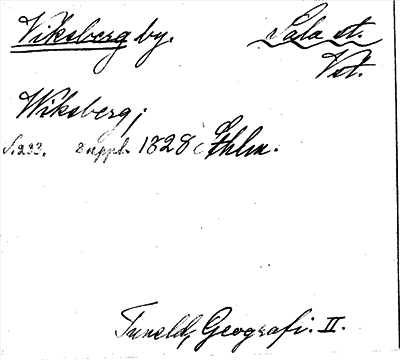 Viksberg by. Sala st.
Vst.
Wiksberg;
S. 233. 8 uppl. 1828 Sthlm.
Tuneld, Geografi. II.